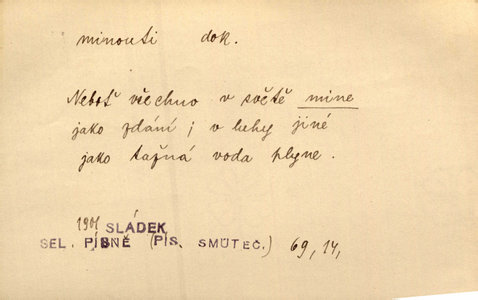 minouti dok.
Neboť všechno v světě mine
jako zdání; v břehy jiné
jako tažná voda plyne.
1901 SLÁDEK
SEL. PÍSNĚ (PÍS. SMUTEČ.) 69, 14,